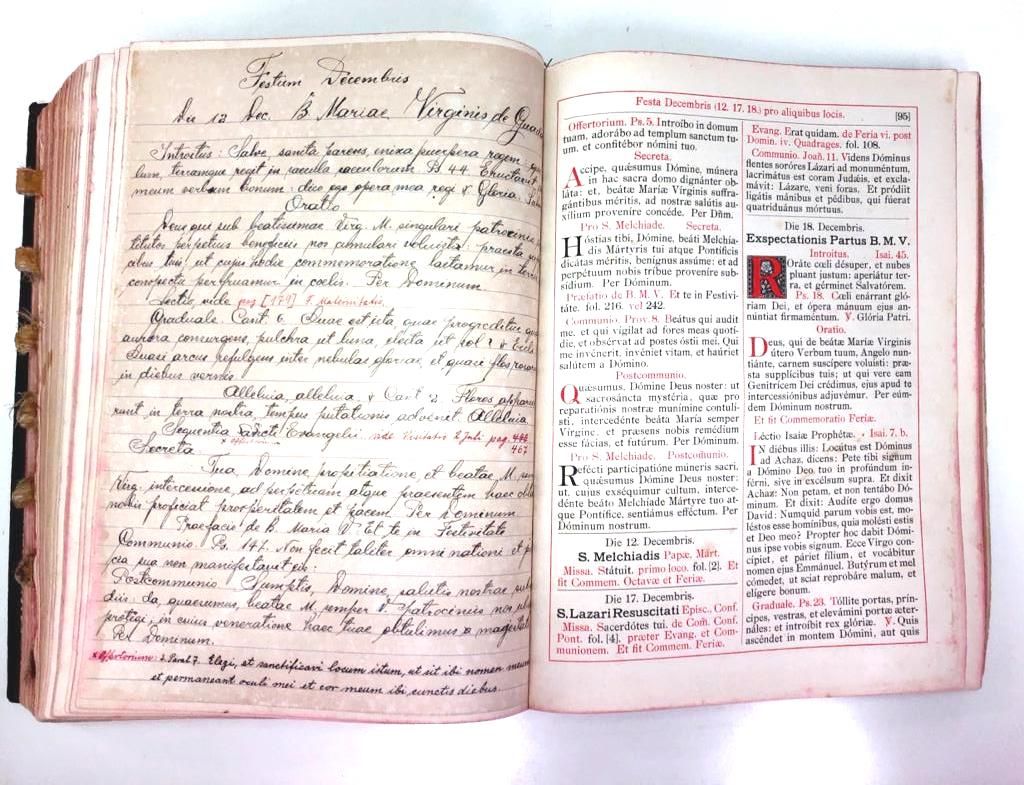 Festum Decembris
Die 12 Dec. B. Mariae Virginis de
Introitus: Salve, sancta parens, enixa puerpera regem,
lum, terramque regit in saecula saeculorum. Ps 44. Eructavit
meum verbum bonum: dico ego opera mea regi ℣ Gloria.
Oratio
Deus qui sub beatissimae Virg. M. singulari patrocinio
titutos perpetuis beneficiis nos cumulari voluisti: praesta
cibus tuis ut cujus hodie commemoratione laetamur in terris
conspectu perfruamur in coelis. Per Dominum
Lectio vide pag [171] F. Maternitatis.
Graduale. Cant 6. Quae est ista, quae progreditur
aurora consurgens, pulchra ut luna, electa ut sol? ℣
Quasi arcus refulgens inter nebulas gloriae, et quasi flos
in diebus vernis
Alleluia, alleluia, ℣ Cant 2 Flores
runt in terra nostra, tempus putationis advenit. Alleluia
Sequentia sancti Evangelii vide Visitatio 2 Juli pag.
467
Secreta
Tua Domine, propitiatione, et beatae M.
Virg. intercessione, ad perpetuam atque praesentem haec
nobis proficiat prosperitatem et pacem. Per Dominum
Praefacio de B. Maria V. Et te in Festivitate
Communio. Ps. 147. Non fecit taliter omni nationi et
cia sua non manifestavit eis.
Postcommunio Sumptis, Domine, salutis nostrae
diis: da, quaesumus, beatae M. semper V. Patrociniis nos
protegi, in cuius veneratione haec tuae obtulimus majestati
Per Dominum.
x Offertorium: 2 Paral 7. Elegi, et sanctificavi locum istum, ut sit ibi nomen meum
et permaneant oculi mei et cor meum ibi cunctis diebus.
Festa Decembris (12. 17. 18.) pro aliquibus locis.
[95]
Offertorium. Ps. 5. Introíbo in domum
tuam, adorábo ad templum sanctum tu-
um, et confitébor nómini tuo.
Secreta.
Accipe, quǽsumus, Dómine, múnera
in hac sacra domo dignánter ob-
láta: et, beátæ Maríæ Vírginis suffra-
gántibus méritis, ad nostræ salútis au-
xílium proveníre concéde. Per Dñm.
Pro S. Melchiade. Secreta.
Hóstias tibi, Dómine, beáti Melchía-
dis Mártyris tui atque Pontíficis
dicátas méritis, benígnus assúme: et ad
perpétuum nobis tríbue proveníre sub-
sídium. Per Dóminum.
Præfatio de B. M. V. Et te in Festivi-
táte. fol. 216. vel 242.
Communio. Prov. 8. Beátus qui audit
me, et qui vígilat ad fores meas quotí-
die, et obsérvat ad postes óstii mei. Qui
me invénerit, invéniet vitam, et háuriet
salútem a Dómino.
Postcommunio.
Quǽsumus, Dómine Deus noster: ut
sacrosáncta mystéria, quæ pro
reparatiónis nostræ munímine contulí-
sti, intercedénte beáta María semper
Vírgine, et præsens nobis remédium
esse fácias, et futúrum. Per Dóminum.
Pro S. Melchiade. Postcomunio.
Refécti participatióne múneris sacri,
quǽsumus Dómine Deus noster:
ut, cuius exséquimur cultum, intercé-
dénte beáto Melchíade Mártyre tuo at-
que Pontífice, sentiámus efféctum. Per
Dóminum nostrum.
Die 12. Decembris.
S. Melchiadis Papæ, Márt.
Missa. Státuit. primo loco. fol. [2]. Et
fit Commem. Octavæ et Feriæ.
Die 17. Decembris.
S. Lazari Resuscitati Episc., Conf.
Missa. Sacerdótes tui. de Com. Conf.
Pont. fol. [4]. præter Evang. et Com-
munionem. Et fit Commem. Feriæ.
Evang. Erat quidam. de Feria vi. post
Domin. iv. Quadrages. fol. 108.
Communio. Joañ. 11. Videns Dóminus
flentes soróres Lázari ad monuméntum,
lacrimátus est coram Judǽis, et exclа-
mávit: Lázare, veni foras. Et pródiit
ligátis mánibus et pédibus, qui fúerat
quatriduánus mórtuus.
Die 18. Decembris.
Exspectationis Partus B. M. V.
Introitus. Isai. 45.
Roráte cœli désuper, et nubes
pluant justum: aperiátur ter-
ra, et gérminet Salvatórem.
Ps. 18. Cœli enárrant gló-
riam Dei, et ópera mánuum ejus an-
núntiat firmaméntum. ℣. Glória Patri.
Oratio.
Deus, qui de beátæ Maríæ Vírginis
útero Verbum tuum, Angelo nun-
tiánte, carnem suscípere voluísti: præ-
sta supplícibus tuis; ut qui vere eam
Genitrícem Dei crédimus, ejus apud te
intercessiónibus adjuvémur. Per eúm-
dem Dóminum nostrum.
Et fit Commemoratio Feriæ.
Léctio Isaíæ Prophétæ. Isai. 7. b.
IN diébus illis: Locútus est Dóminus
ad Achaz, dicens: Pete tibi signum
a Dómino Deo tuo in profúndum in-
férni, sive in excélsum supra. Et dixit
Achaz: Non petam, et non tentábo Dó-
minum. Et dixit: Audíte ergo domus
David: Numquid parum vobis est, mo-
léstos esse homínibus, quia molésti estis
et Deo meo? Propter hoc dabit Dómi-
nus ipse vobis signum. Ecce Virgo con-
cípiet, et páriet fílium, et vocábitur
nomen ejus Emmánuel. Butýrum et mel
cómedet, ut sciat reprobáre malum, et
elígere bonum.
Graduale. Ps. 23. Tóllite portas, prín-
cipes, vestras, et elevámini portæ æter-
náles: et introíbit rex glóriæ. ℣. Quis
ascéndet in montem Dómini, aut quis